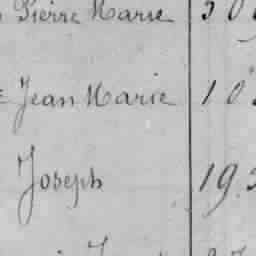 Pierre Marie 30
Jean Marie 10
Joseph 19